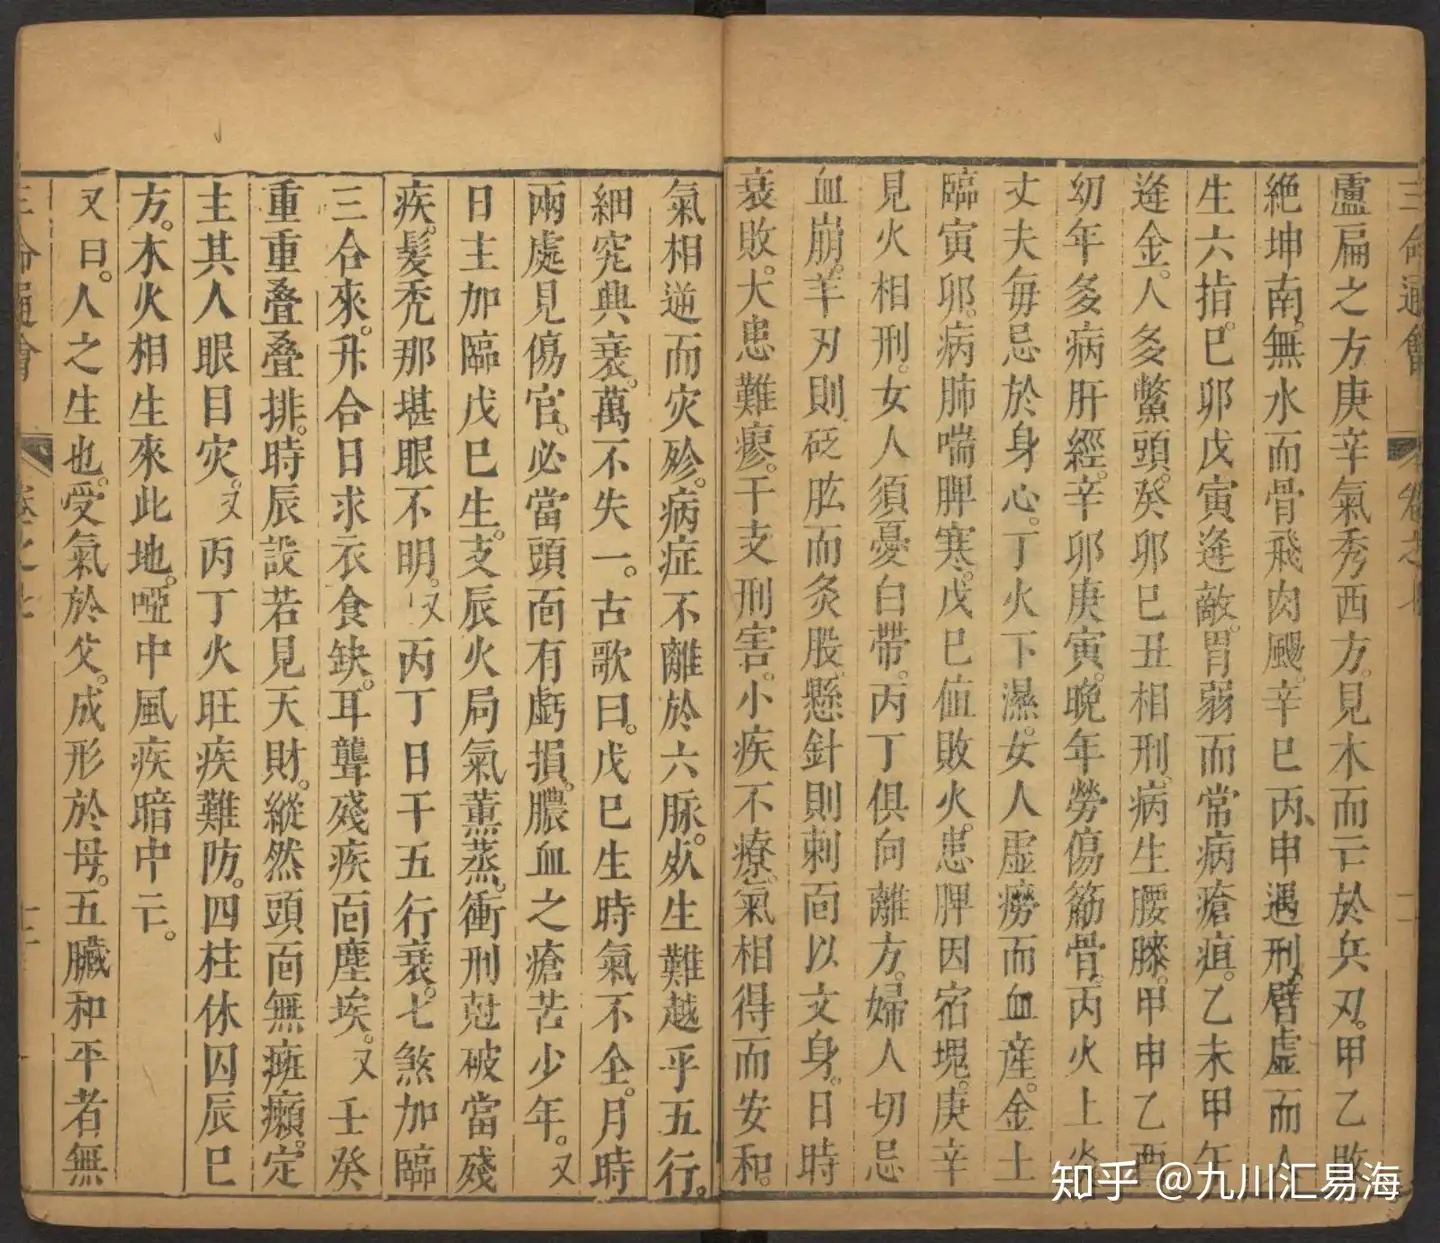 三命通會 卷之七
盧扁之方庚辛氣秀西方。見木而亡於兵刃。甲乙敗
絶坤南。無水而骨飛肉颺。辛巳丙申遇刑。臂虛而人
生六指。巳卯戊寅逢敵。胃弱而常病瘡疽。乙未甲午
逢金。人多鱉頭。癸卯巳丑相刑。病生腰膝。甲申乙酉
幼年多病肝經。辛卯庚寅。晚年勞傷筋骨。丙火上炎
丈夫每忌於身心。丁火下濕。女人虛癆而血產。金土
臨寅卯。病肺喘脾寒。戊巳值敗火。患脾因宿塊。庚辛
見火相刑。女人須憂白帶。丙丁俱向離方。婦人切忌
血崩。羊刃則砭肱而灸股。懸針則刺面以文身。日時
衰敗。大患難瘳。干支刑害。小疾不療。氣相得而安和。
氣相逆而灾殄。病症不離於六脉。攵生難越乎五行。
細究興衰。萬不失一。古歌曰。戊巳生時氣不全。月時
兩處見傷官。必當頭面有虧損。膿血之瘡苦少年。又
日主加臨戊巳生。支辰火局氣薰蒸。衝刑尅破當殘
疾。髮禿那堪眼不明。又丙丁日干五行衰。七煞加臨
三合來。升合日求衣食缺。耳聾殘疾面塵埃。又壬癸
重重叠叠排。時辰設若見天財。縱然頭面無瘢癩。定
主其人眼目灾。又丙丁火旺疾難防。四柱休囚辰巳
方。木火相生來此地。啞中風疾暗中亡。
又曰。人之生也。受氣於父。成形於母。五臟和平者無
三命通會 卷之七
知乎 @九川汇易海